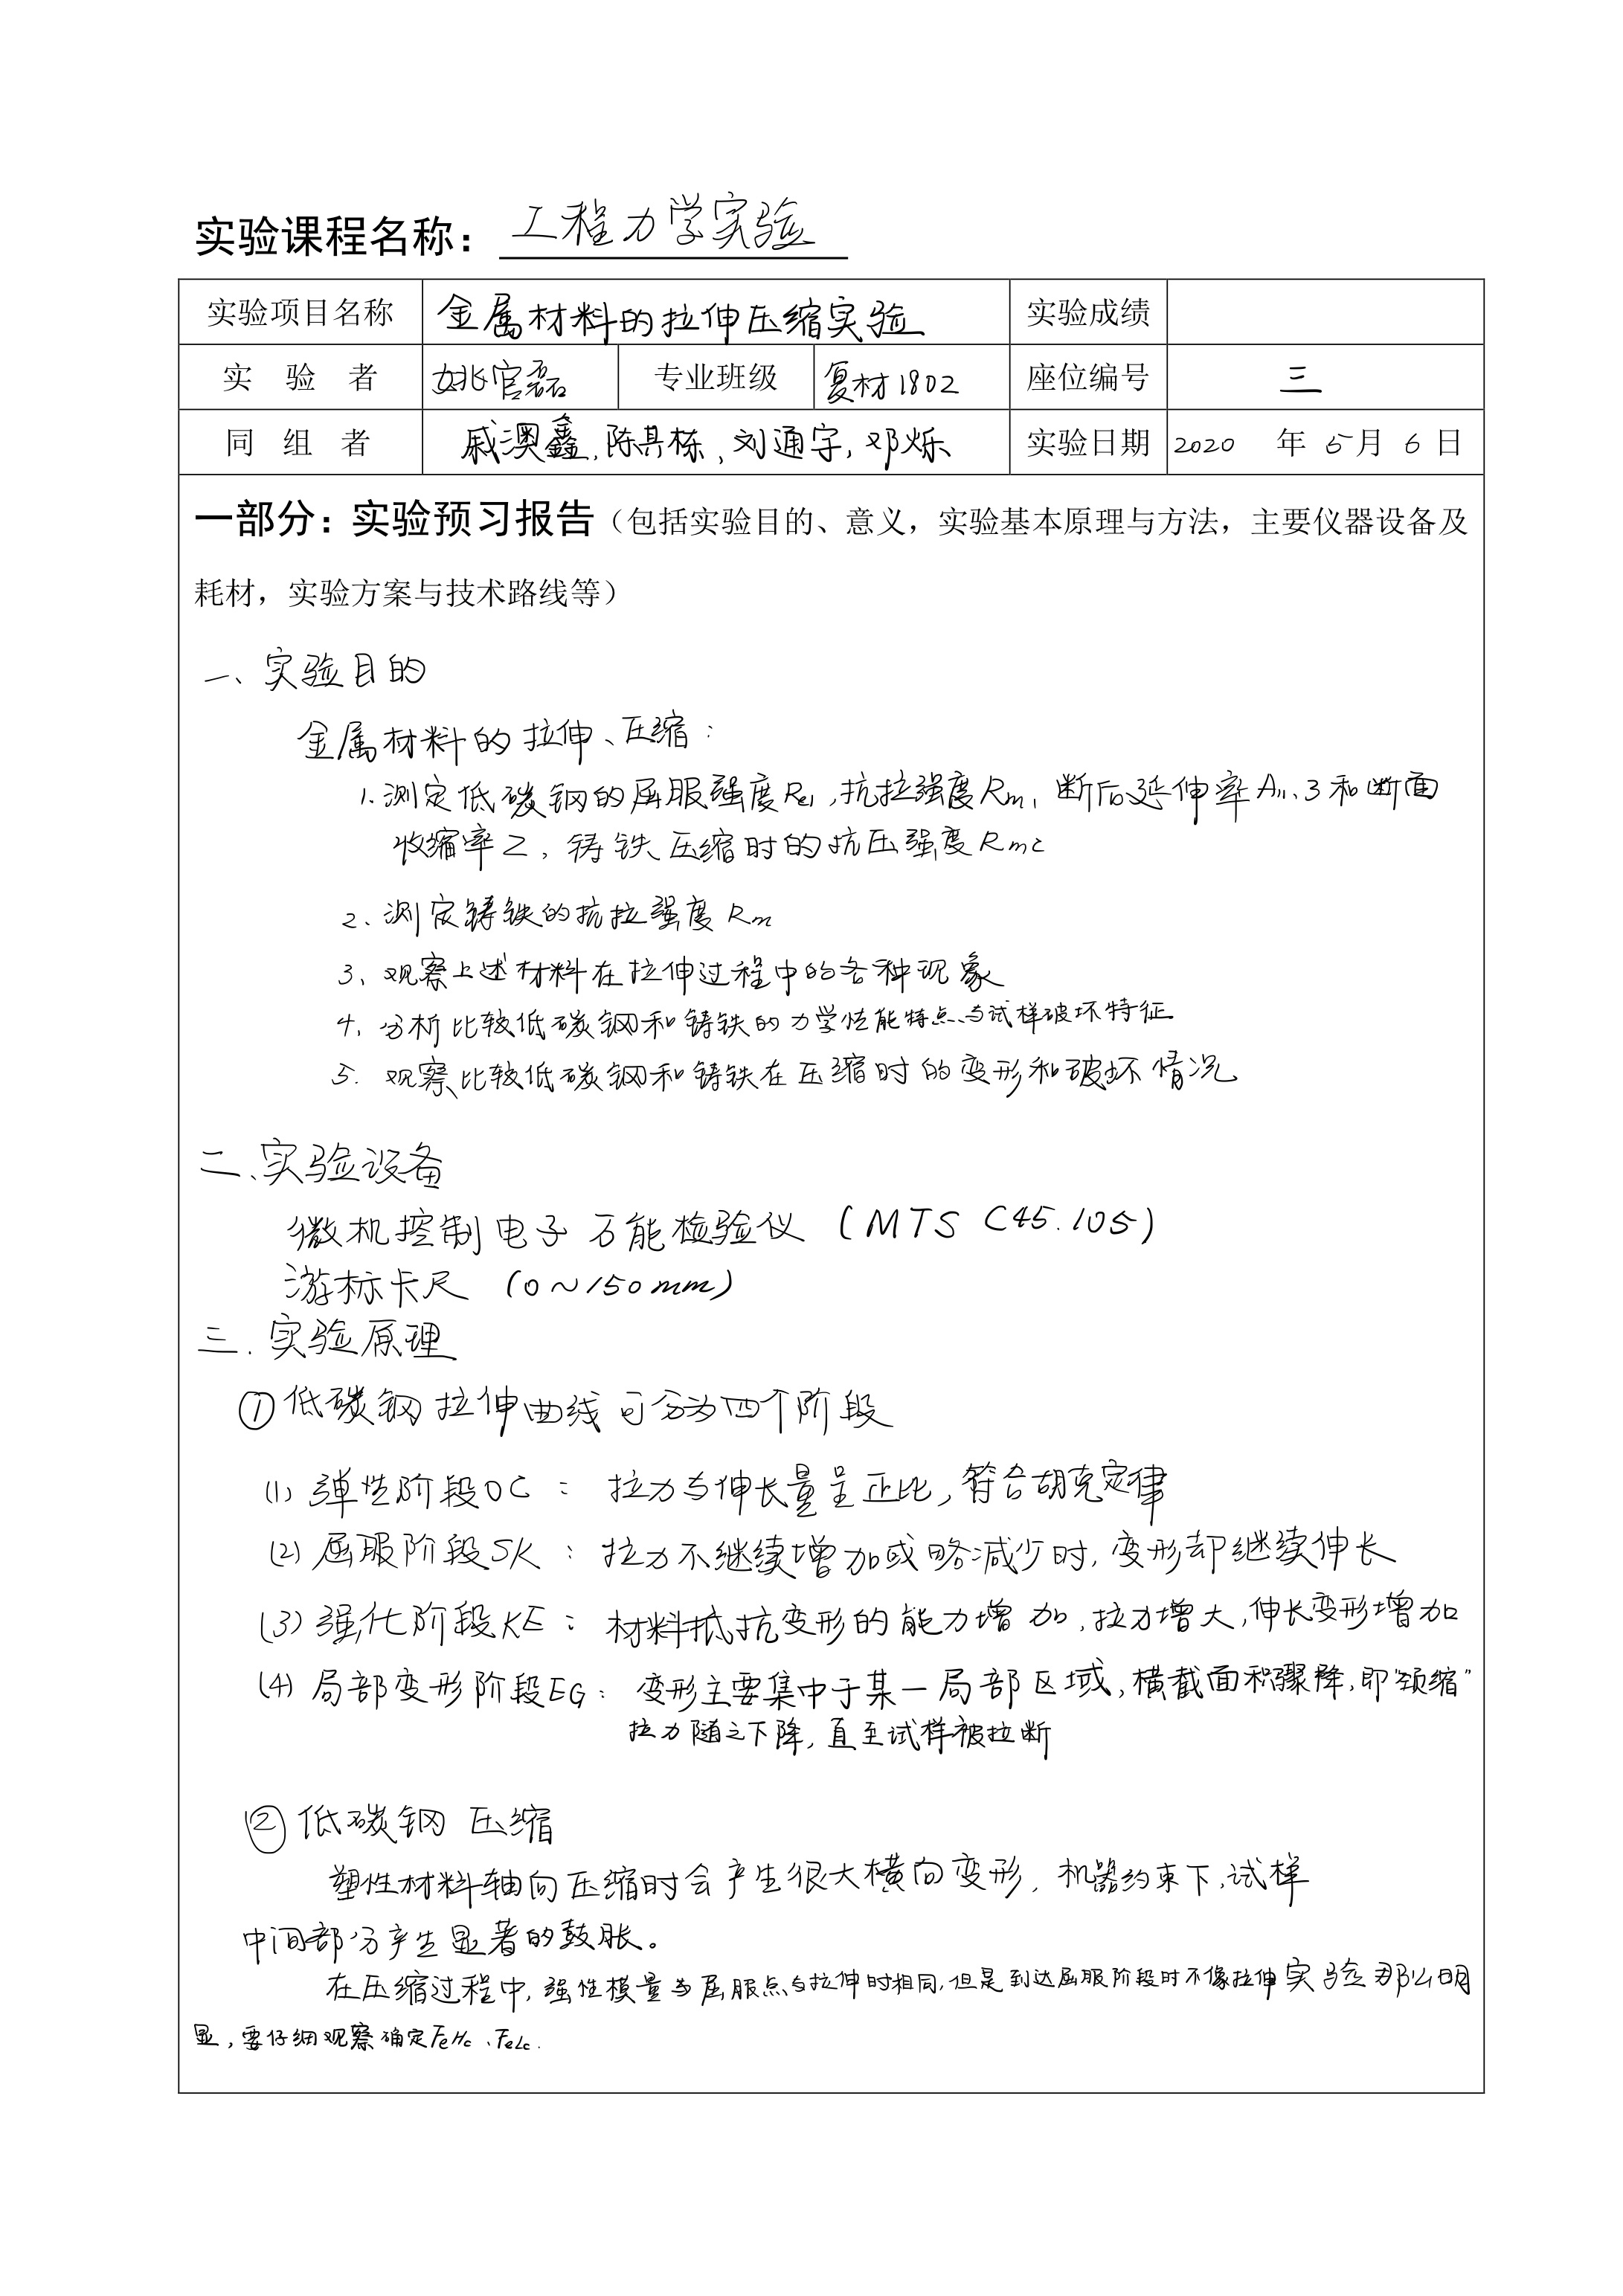 实验课程名称：工程力学实验
实验项目名称 金属材料的拉伸压缩实验 实验成绩
实 验 者 姚官磊 专业班级 复材1802 座位编号 三
同 组 者 戚澳鑫,陈其栋,刘通宇,邓烁 实验日期 2020 年 5 月 6 日
一部分：实验预习报告（包括实验目的、意义，实验基本原理与方法，主要仪器设备及
耗材，实验方案与技术路线等）
一、实验目的
金属材料的拉伸、压缩：
1.测定低碳钢的屈服强度Rel,抗拉强度Rm、断后延伸率A11.3和断面
收缩率Z，铸铁压缩时的抗压强度Rmc
2、测定铸铁的抗拉强度Rm
3、观察上述材料在拉伸过程中的各种现象
4、分析比较低碳钢和铸铁的力学性能特点与试样破坏特征
5. 观察比较低碳钢和铸铁在压缩时的变形和破坏情况
二、实验设备
微机控制电子万能检验仪 (MTS C45.105)
游标卡尺 (0~150mm)
三.实验原理
①低碳钢拉伸曲线可分为四个阶段
(1) 弹性阶段OC： 拉力与伸长量呈正比,符合胡克定律
(2) 屈服阶段SK：拉力不继续增加或略减少时,变形却继续伸长
(3) 强化阶段KE：材料抵抗变形的能力增加,拉力增大,伸长变形增加
(4) 局部变形阶段EG：变形主要集中于某一局部区域,横截面积骤降,即“颈缩”
拉力随之下降,直至试样被拉断
②低碳钢 压缩
塑性材料轴向压缩时会产生很大横向变形，机器约束下,试样
中间部分产生显著的鼓胀。
在压缩过程中,强性模量与屈服点与拉伸时相同,但是到达屈服阶段时不像拉伸实验那么明
显,要仔细观察确定FeHc、FeLc.